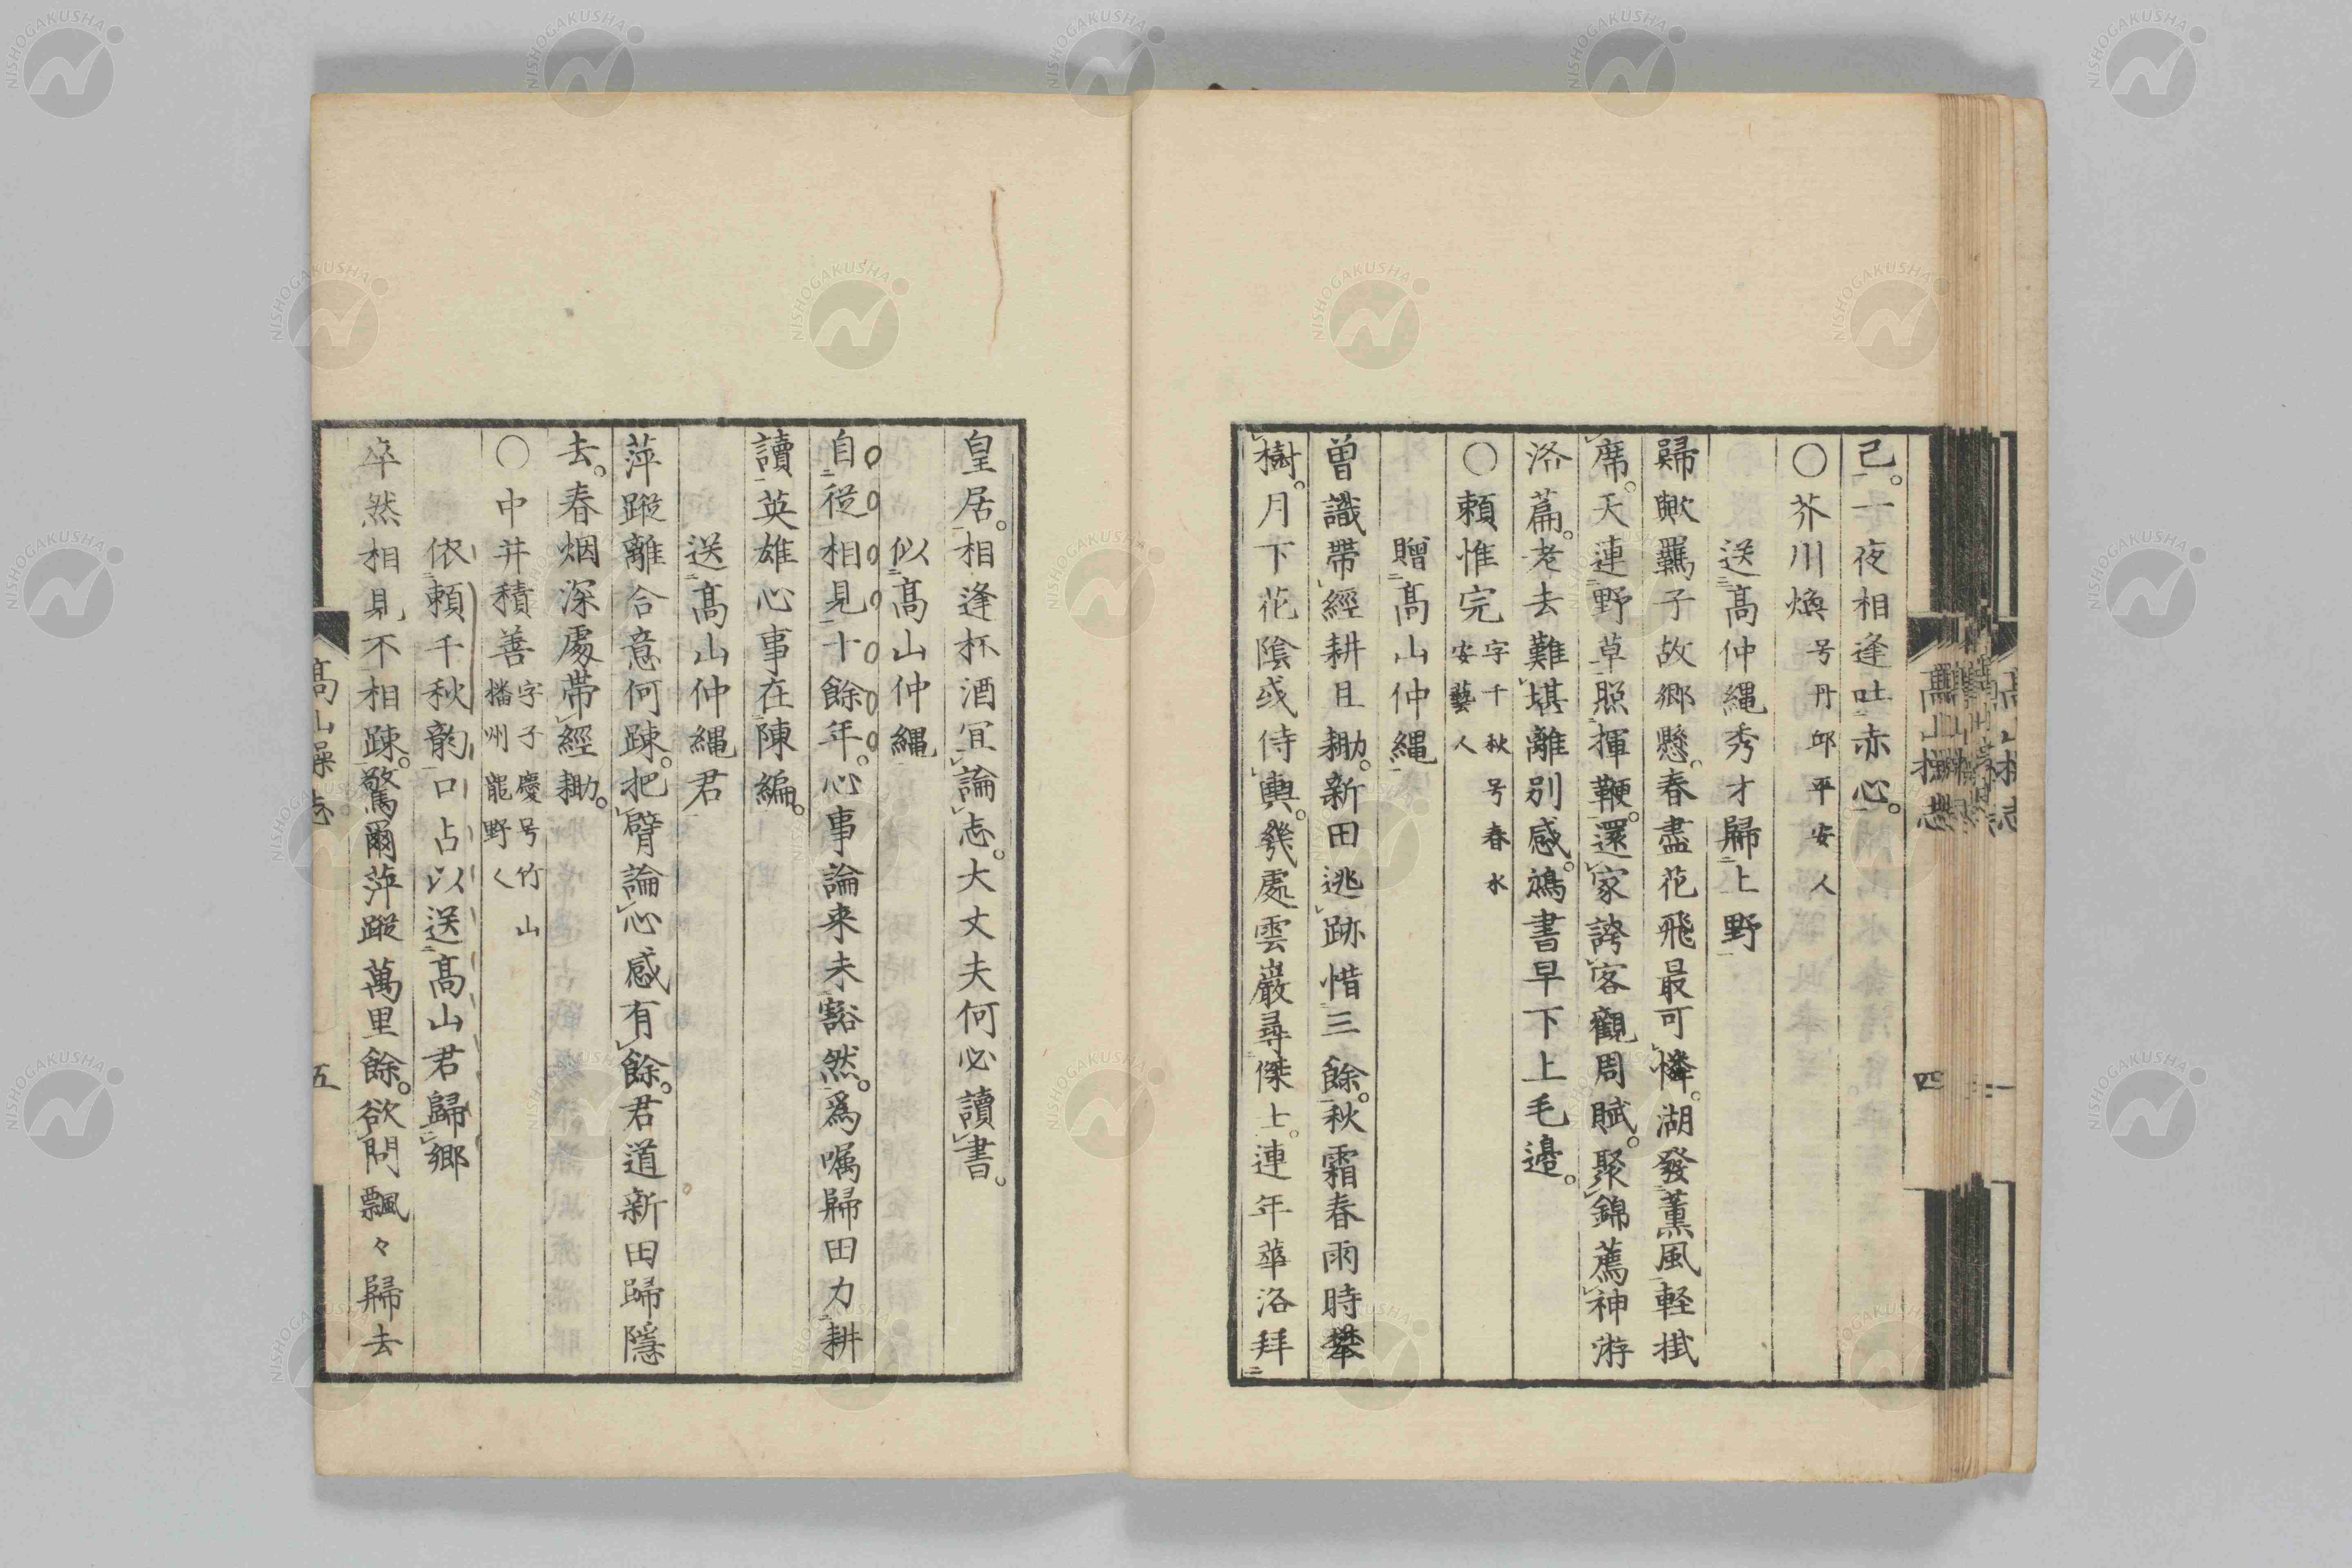 己。一夜相逢吐赤心。
○芥川煥 号丹邱平安人
送髙仲縄秀才歸上野
歸歟羈子故郷懸。春盡花飛最可憐。湖發薫風軽掛
席。天連野草照揮鞭。還家誇客觀周賦。聚錦薦神游
洛篇。老去難堪離別感。鴻書早下上毛邉。
○頼惟完 字千秋号春水
安藝人
贈髙山仲縄
曽識帶經耕且耡。新田逃跡惜三餘。秋霜春雨時攀
樹。月下花陰或侍輿。幾處雲巌尋傑士。連年華洛拜
髙山操志
四
皇居。相逢杯酒冝論志。大丈夫何必讀書。
似髙山仲縄
自從相見十餘年。心事論来未豁然。爲嘱歸田力耕
讀。英雄心事在陳編。
送髙山仲縄君
萍蹤離合意何踈。把臂論心感有餘。君道新田歸隱
去。春烟深處帶經耡。
○中井積善 字子慶号竹山
播州龍野人
依頼千秋韵口占以送髙山君歸郷
卒然相見不相踈。驚爾萍蹤萬里餘。欲問飄々歸去
髙山操志
五
NISHOGAKUSHA